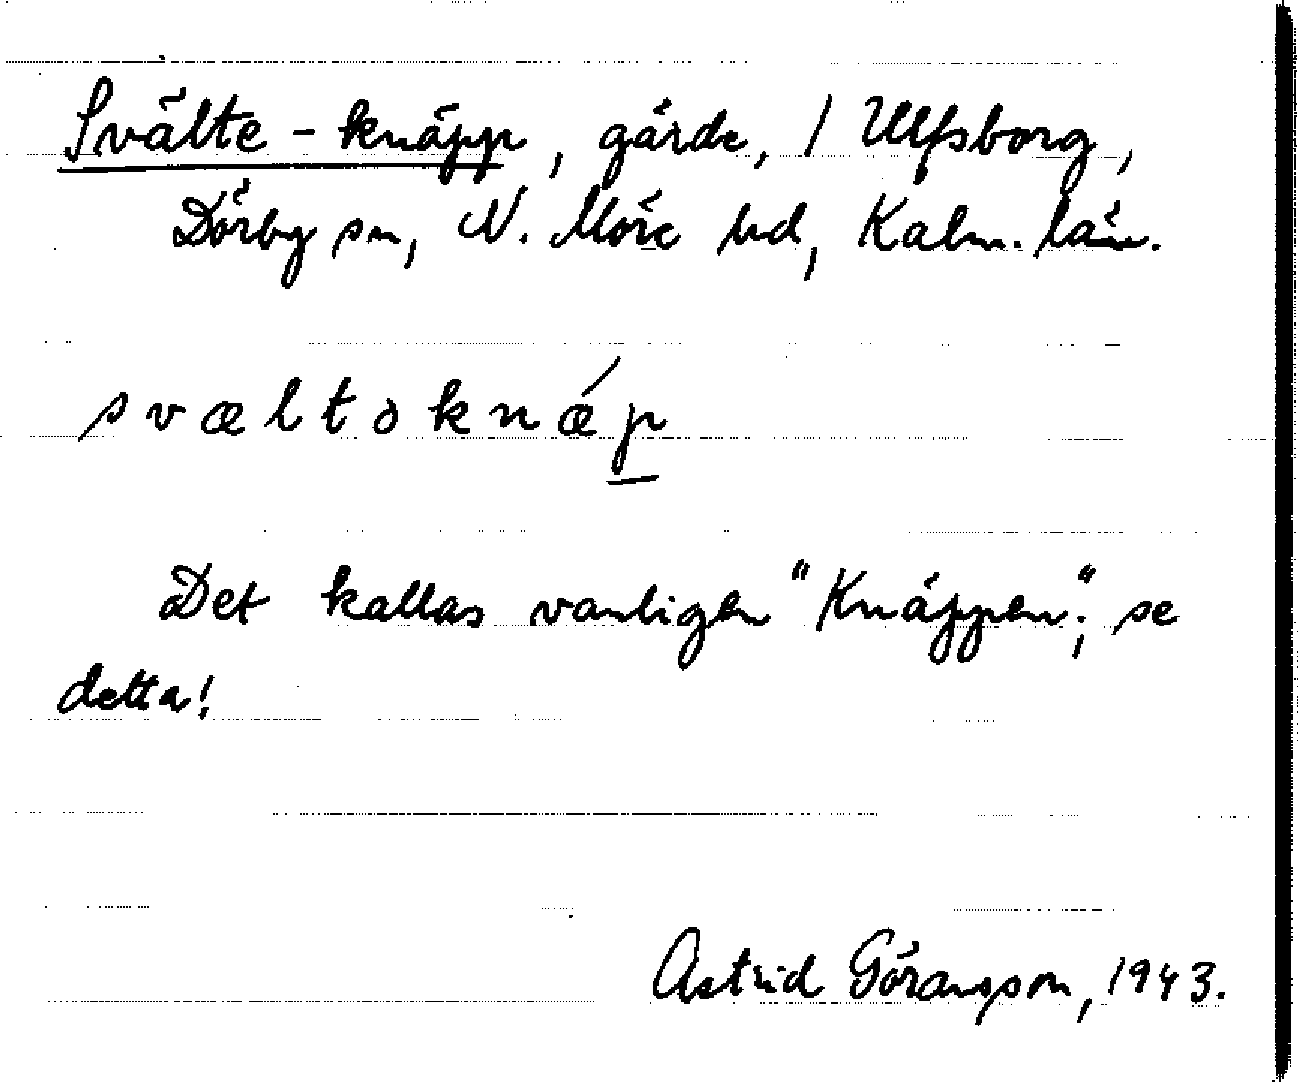 Svälte-knäpp, gärde, / Ulfsborg,
Dörby sn, N. Möre hd, Kalm. län.
svæltoknǽp
Det kallas vanligen "Knäppen"; se
detta!
Astrid Göransson, 1943.